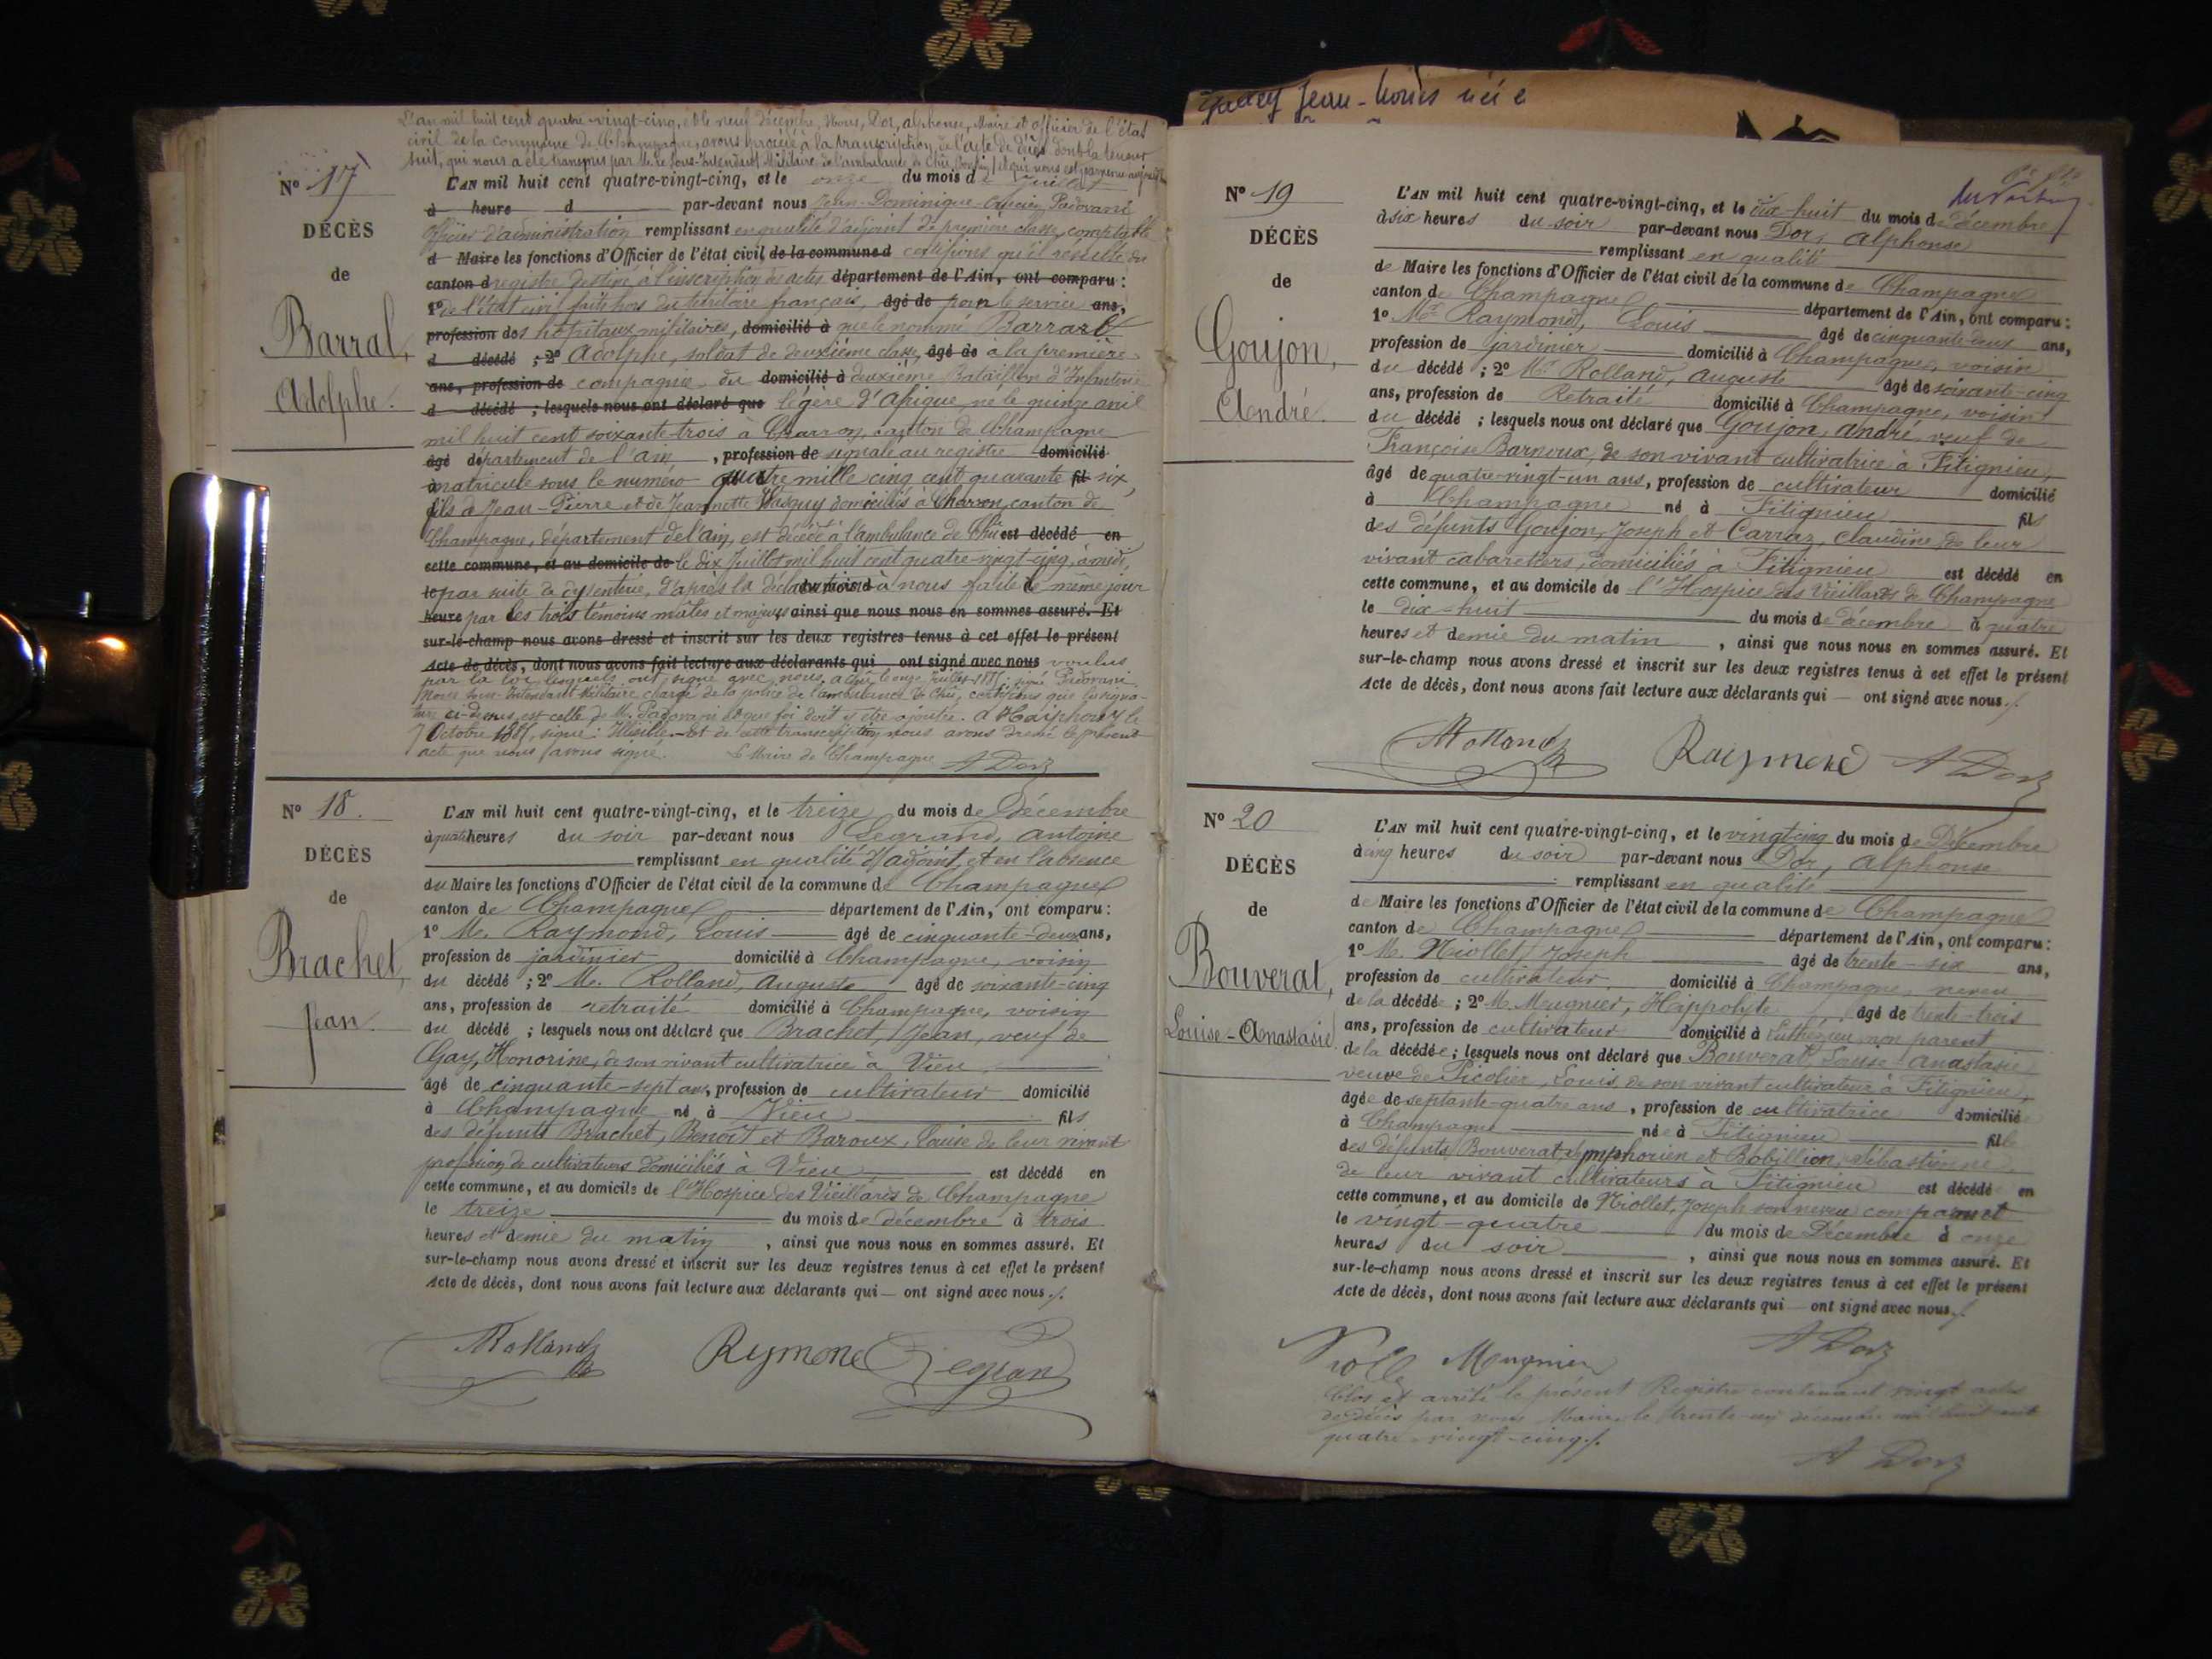 L'an mil huit cent quatre-vingt-cinq, et le neuf Décembre, Nous, Dor, alphonse, Maire et officier de l'état
civil de la commune de Champagne, avons procédé à la transcription de l'acte de décès dont la teneur
suit, qui nous a été transmis par Mr le Sous-Intendant Militaire de l'ambulance de Chü
N° 17
DÉCÈS
de
Barral,
Adolphe.
L'AN mil huit cent quatre-vingt-cinq, et le onze du mois de Juillet
à heure d par-devant nous Jean-Dominique Padovani
officier d'administration remplissant en qualité d'adjoint de première classe, comptable
d Maire les fonctions d'Officier de l'état civil de la commune d certifions qu'il résulte du
canton d registre destiné à l'inscription des actes département de l'Ain, ont comparu :
1° de l'état civil faits hors du territoire français, âgé de pour le service ans,
profession des hôpitaux militaires, domicilié à que le nommé Barral
d décédé ; 2° Adolphe, soldat de deuxième classe, âgé de à la première
ans, profession de compagnie du domicilié à deuxième Bataillon d'Infanterie
d décédé ; lesquels nous ont déclaré que légère d'Afrique, né le quinze avril
mil huit cent soixante-trois à Charron, canton de Champagne
âgé département de l'ain , profession de signalé au registre domicilié
à matricule sous le numéro quatre mille cinq cent quarante fil six,
fils de Jean-Pierre et de Jeannette domiciliés à Charron, canton de
Champagne, département de l'ain, est décédé à l'ambulance de Chü est décédé en
cette commune, et au domicile de le dix Juillet mil huit cent quatre-vingt-cinq, à midi,
le par suite de dysenterie, d'après la déclaration du mois d à nous faite le même jour
heure par les trois témoins mâles et majeurs ainsi que nous nous en sommes assuré. Et
sur-le-champ nous avons dressé et inscrit sur les deux registres tenus à cet effet le présent
Acte de décès, dont nous avons fait lecture aux déclarants qui ont signé avec nous voulus
par la loi lesquels ont signé avec nous, à Chü le onze Juillet 1885 : signé Padovani
Nous Sous-Intendant Militaire chargé de la police de l'ambulance de Chü, certifions que la signa-
ture ci-dessus est celle de M. Padovani et que foi doit y être ajoutée. à Haïphong le
7 Octobre 1885, signé : Illisible. Et de cette transcription nous avons dressé le présent
acte que nous avons signé. Le Maire de Champagne A Dorz
N° 18.
DÉCÈS
de
Brachet,
Jean.
L'AN mil huit cent quatre-vingt-cinq, et le treize du mois de Décembre
à quatre heures du soir par-devant nous Legrand, antoine
remplissant en qualité d'adjoint, et en l'absence
du Maire les fonctions d'Officier de l'état civil de la commune de Champagne
canton de Champagne département de l'Ain, ont comparu :
1° M. Raymond, Louis âgé de cinquante-deux ans,
profession de jardinier domicilié à Champagne, voisin
du décédé ; 2° M. Rolland, Auguste âgé de soixante-cinq
ans, profession de retraité domicilié à Champagne, voisin
du décédé ; lesquels nous ont déclaré que Brachet, Jean, veuf de
Gay, Honorine, de son vivant cultivatrice à Vieu
âgé de cinquante-sept ans, profession de cultivateur domicilié
à Champagne né à Vieu fils
des défunts Brachet, Benoît et Baroux, Louise de leur vivant
profession de cultivateurs domiciliés à Vieu est décédé en
cette commune, et au domicile de l'Hospice des Vieillards de Champagne
le treize du mois de décembre à trois
heures et demie du matin , ainsi que nous nous en sommes assuré. Et
sur-le-champ nous avons dressé et inscrit sur les deux registres tenus à cet effet le présent
Acte de décès, dont nous avons fait lecture aux déclarants qui — ont signé avec nous./.
Rolland Rymone Legran
Jean-Louis née
N° 19
DÉCÈS
de
Goujon,
André.
L'AN mil huit cent quatre-vingt-cinq, et le dix-huit du mois de décembre
à six heures du soir par-devant nous Dor, Alphonse
remplissant en qualité
de Maire les fonctions d'Officier de l'état civil de la commune de Champagne
canton de Champagne département de l'Ain, ont comparu :
1° Mr Raymond, Louis âgé de cinquante-deux ans,
profession de Jardinier domicilié à Champagne, voisin
du décédé ; 2° Mr Rolland, Auguste âgé de soixante-cinq
ans, profession de Retraité domicilié à Champagne, voisin
du décédé ; lesquels nous ont déclaré que Goujon, André, veuf de
Françoise Barnoux, de son vivant cultivatrice à Fitignieu,
âgé de quatre-vingt-un ans, profession de cultivateur domicilié
à Champagne né à Fitignieu fils
des défunts Goujon, Joseph et Carraz, Claudine, de leur
vivant cabaretiers, domiciliés à Fitignieu est décédé en
cette commune, et au domicile de l'Hospice des Vieillards de Champagne
le dix-huit du mois de décembre à quatre
heures et demie du matin , ainsi que nous nous en sommes assuré. Et
sur-le-champ nous avons dressé et inscrit sur les deux registres tenus à cet effet le présent
Acte de décès, dont nous avons fait lecture aux déclarants qui — ont signé avec nous./.
Rolland Raymond A Dorz
N° 20
DÉCÈS
de
Bouverat,
Louise-Anastasie
L'AN mil huit cent quatre-vingt-cinq, et le vingt cinq du mois de Décembre
à cinq heures du soir par-devant nous Dor, Alphonse
remplissant en qualité
de Maire les fonctions d'Officier de l'état civil de la commune de Champagne
canton de Champagne département de l'Ain, ont comparu :
1° M. Niollet, Joseph âgé de trente-six ans,
profession de cultivateur domicilié à Champagne, neveu
de la décédée ; 2° M. Meugnier, Hippolyte, âgé de trente-trois
ans, profession de cultivateur domicilié à Luthézieu, non parent
de la décédée ; lesquels nous ont déclaré que Bouverat Louise Anastasie,
veuve de Picolier, Louis, de son vivant cultivateur à Fitignieu,
âgée de septante-quatre ans , profession de cultivatrice domiciliée
à Champagne née à Fitignieu fille
des défunts Bouverat Symphorien et Bobillion, Sébastienne
de leur vivant cultivateurs à Fitignieu est décédée en
cette commune, et au domicile de Niollet, Joseph son neveu comparant
le vingt-quatre du mois de Décembre à onze
heures du soir , ainsi que nous nous en sommes assuré. Et
sur-le-champ nous avons dressé et inscrit sur les deux registres tenus à cet effet le présent
Acte de décès, dont nous avons fait lecture aux déclarants qui — ont signé avec nous./.
Meugnier A Dorz
Clos et arrêté le présent Registre contenant vingt actes
de décès par nous Maire, le trente-un décembre mil huit cent
quatre-vingt-cinq./.
A Dorz